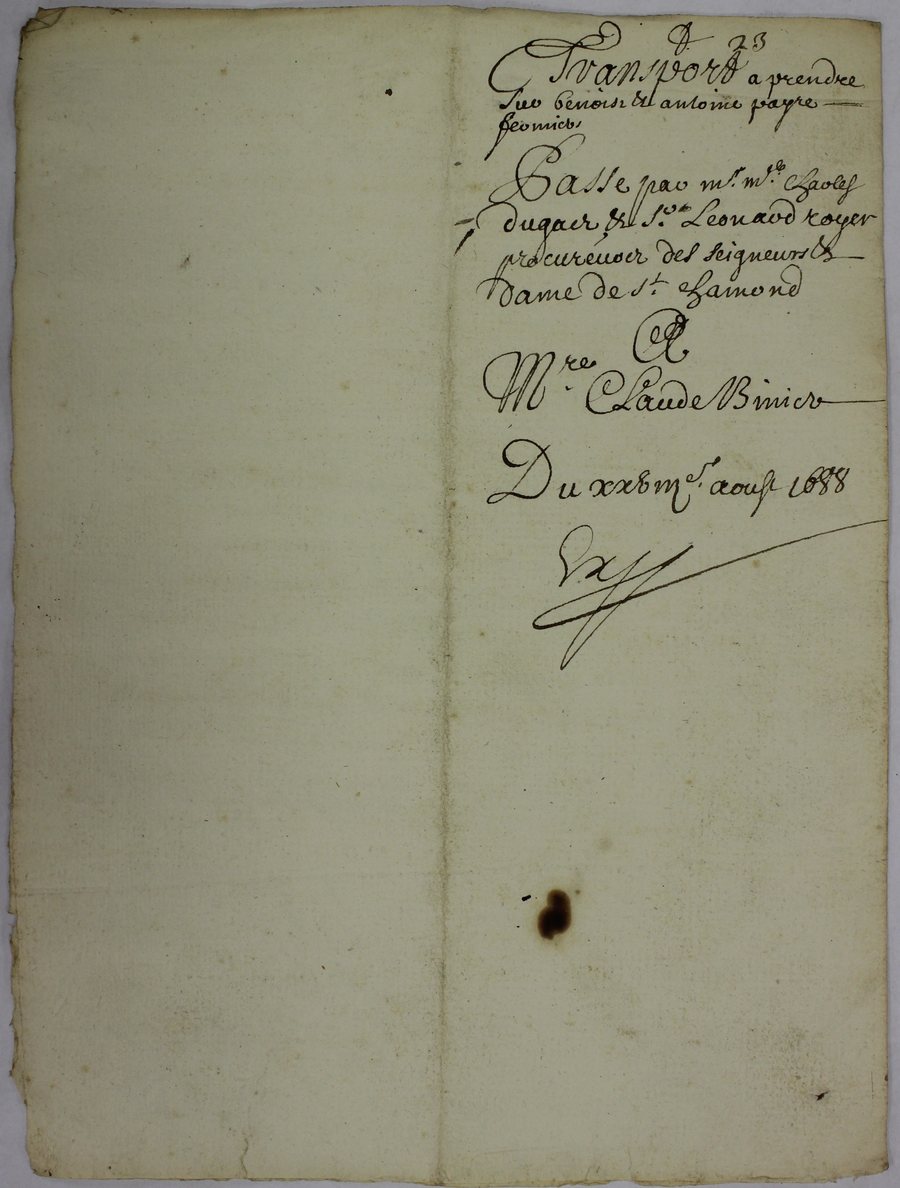 23
Transport a prendre
sur benoist & antoine payre
fermiers
Passe par mr. mre. Charles
dugair & sr. Leonard royer
procureuor des seigneurs &
Dame de st. chamond
A
Mre Claude Binier
Du xxvme. aoust 1688